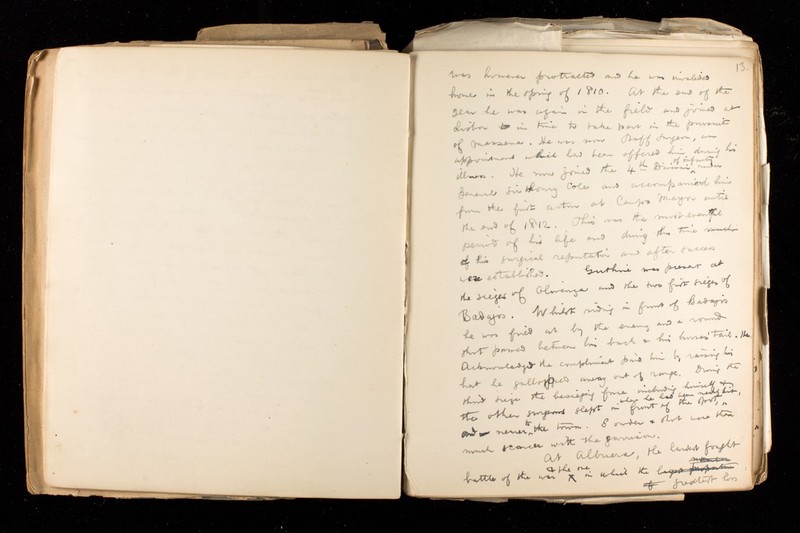 13.
was however protracted and he was invalided
home in the spring of 1810. At the end of the
year he was again in the field and joined at
Lisbon in time to take part in the pursuit
of Massena. He was now Staff Surgeon, an
appointment which had been offered him during his
illness. He now joined the 4th Division of infantry under
General Sir Lowry Cole and accompanied him
from the first action at Campo Mayor until
the end of 1812. This was the most eventful
period of his life and during this time much
of his surgical reputation and after success
were established. Guthrie was present at
the sieges of Olivenza and the two first sieges of
Badajos. Whilst riding in front of Badajos
he was fired at by the enemy and a round
shot passed between his back & his horses' tail. He
acknowledged the compliment paid him by raising his
hat he galloped away out of range. During the
third siege the besieging force including himself &
the other surgeons slept in front of the
where he had been nearly hit,
and nearer to the town. Powder & shot were then
much scarcer with the garrison.
At Albuera, the hardest fought
battle of the war & the one in which the
greatest loss